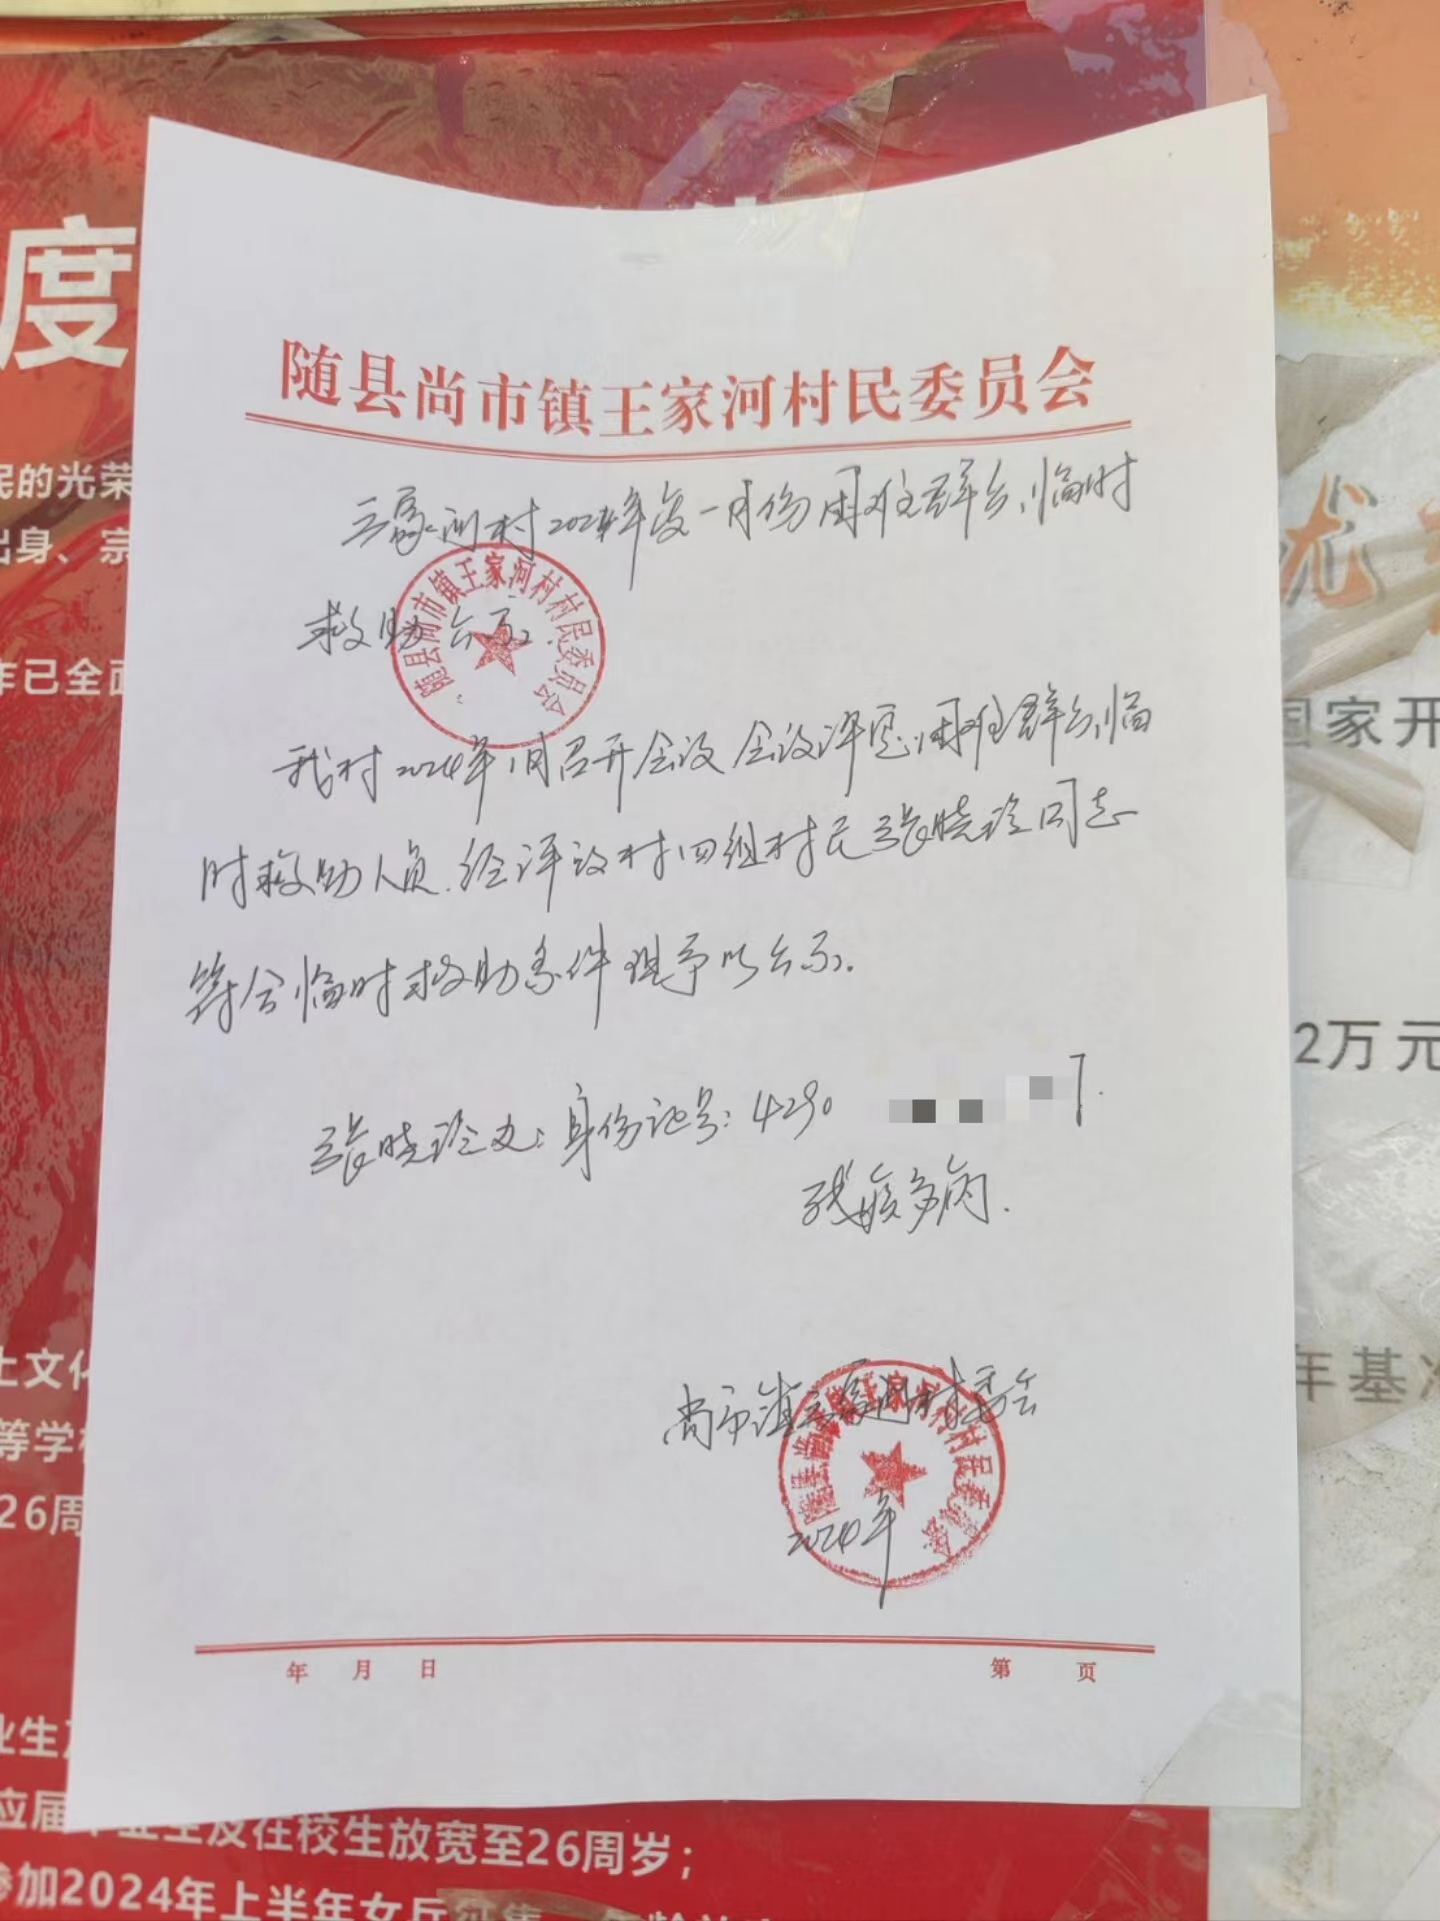 度
民的光荣
出身、宗
作已全面
土文化
等学校
26周
业生及
应届毕业生及在校生放宽至26周岁；
参加2024年上半年女兵征集
随县尚市镇王家河村民委员会
王家河村2024年度一月份困难群众临时
救助公示.
随县尚市镇王家河村村民委员会
我村2024年1月召开会议 会议评定困难群众临
时救助人员.经评议村四组村民张晓玲同志
符合临时救助条件 现予以公示.
张晓玲 女：身份证号：4290
7.
残疾多病.
尚市镇王家河村委会
随县尚市镇王家河村村民委员会
2024年
年 月 日 第 页
优
国家开
2万元
年基准